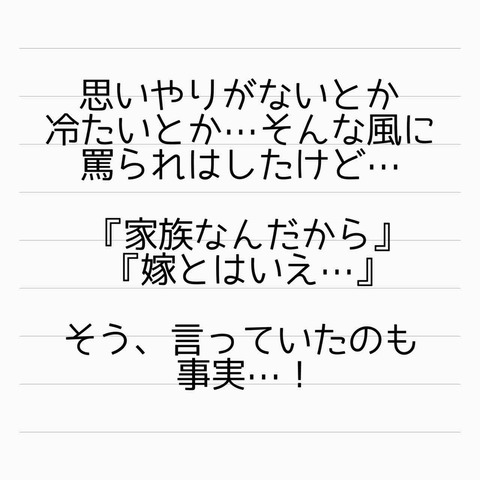 思いやりがないとか
冷たいとか…そんな風に
罵られはしたけど…
『家族なんだから』
『嫁とはいえ…』
そう、言っていたのも
事実…！